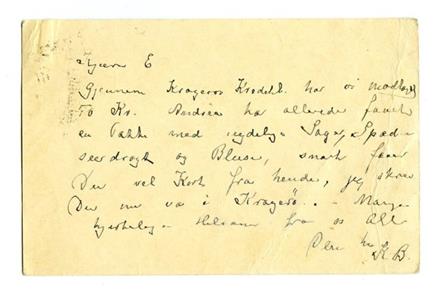 Kjære E
Gjennem Kragerøs Kreditb. har vi modtaget
To Kr. Andrea har allerede faaet
en Pakke med nydelig Sager, Spæd-
seerdragt og Bluse, snart faar
Du vel Kort fra hende, jeg skrev
Du nu va i Kragerø. - Mange
hjertelig Hilsener fra os Alle
Din
K B.